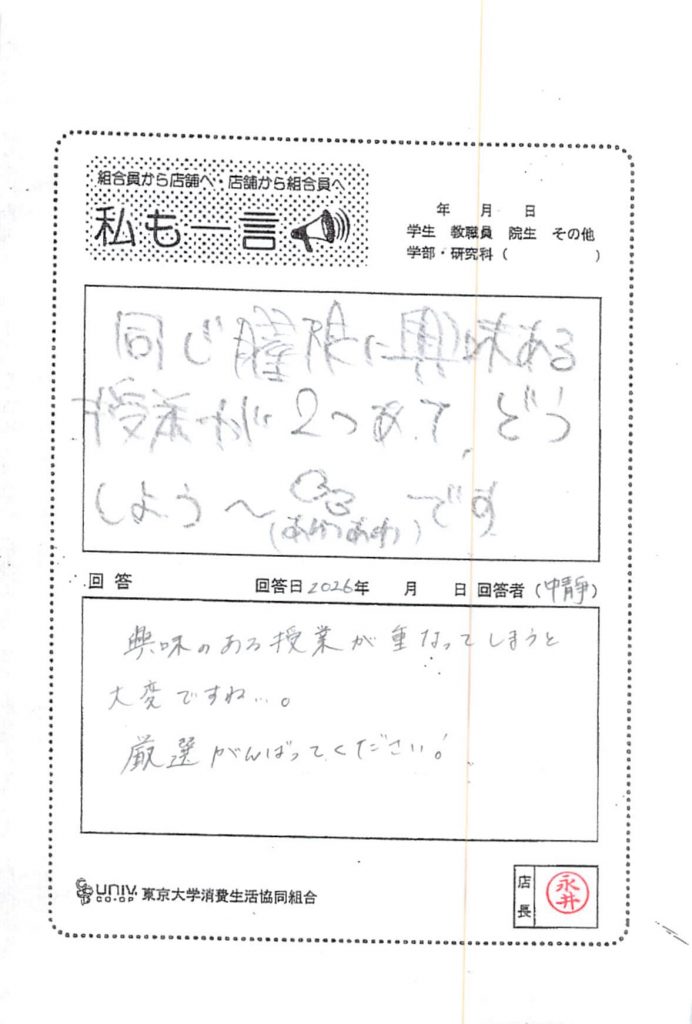 組合員から店舗へ・店舗から組合員へ
私も一言
年 月 日
学生 教職員 院生 その他
学部・研究科 ( )
同じ曜限に興味ある
授業が2つあって、どう
しよう〜です
回答
回答日2026年 月 日 回答者 (中靜)
興味のある授業が重なってしまうと
大変ですね…。
厳選がんばってください!
UNIV.
CO-OP
東京大学消費生活協同組合
店長
永井